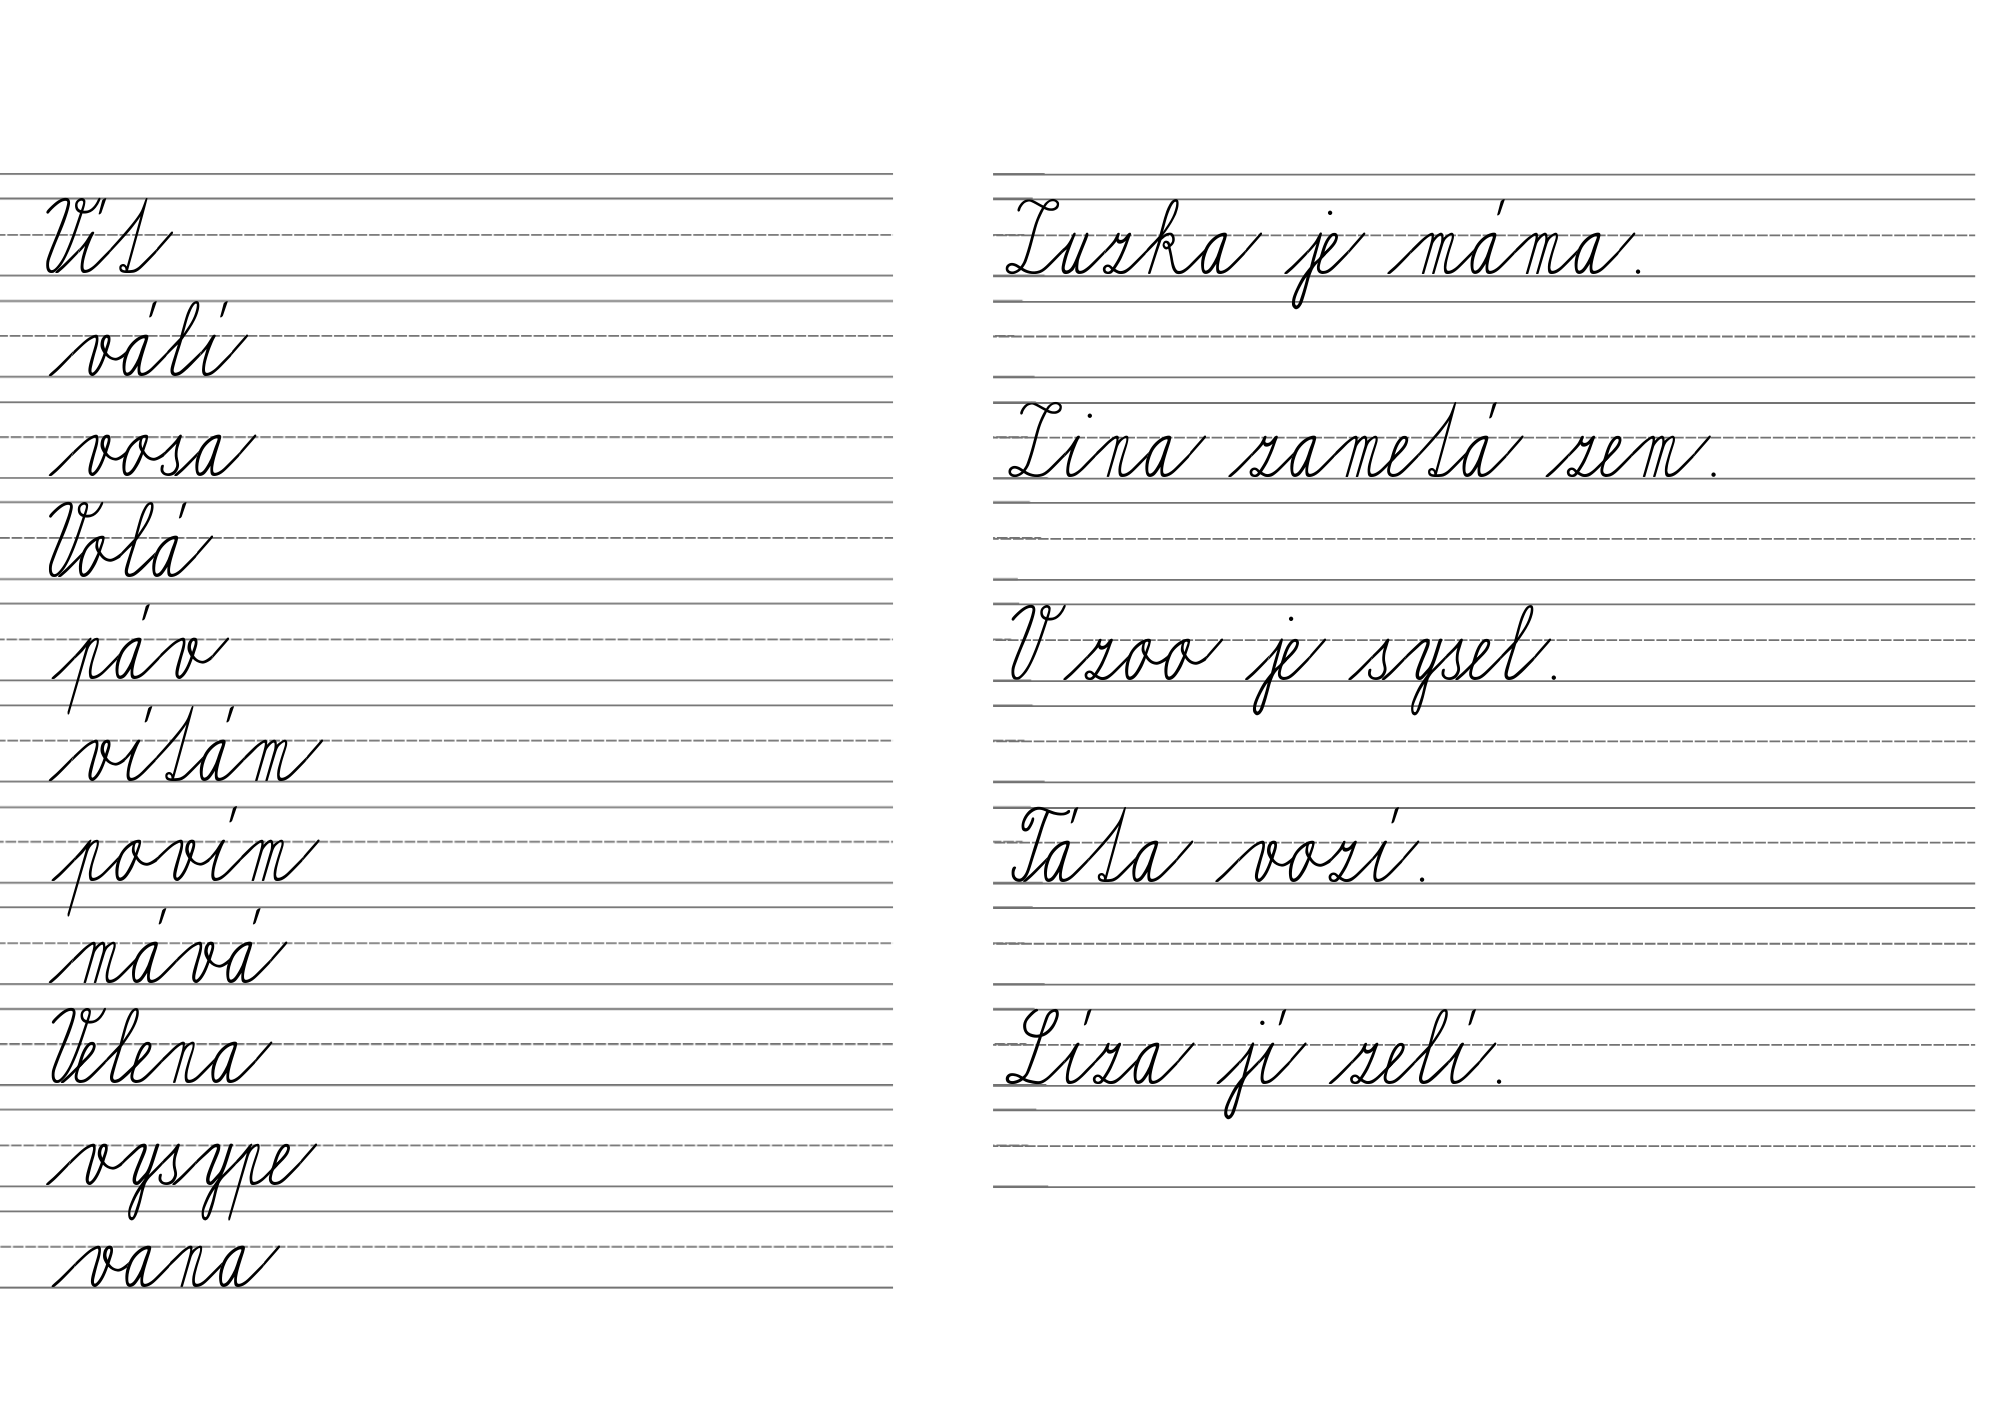 Vít
válí
vosa
Volá
páv
vítám
povím
mává
Velena
vysype
vana
Zuzka je máma.
Zina zametá zem.
V zoo je sysel.
Táta vozí.
Líza jí zelí.